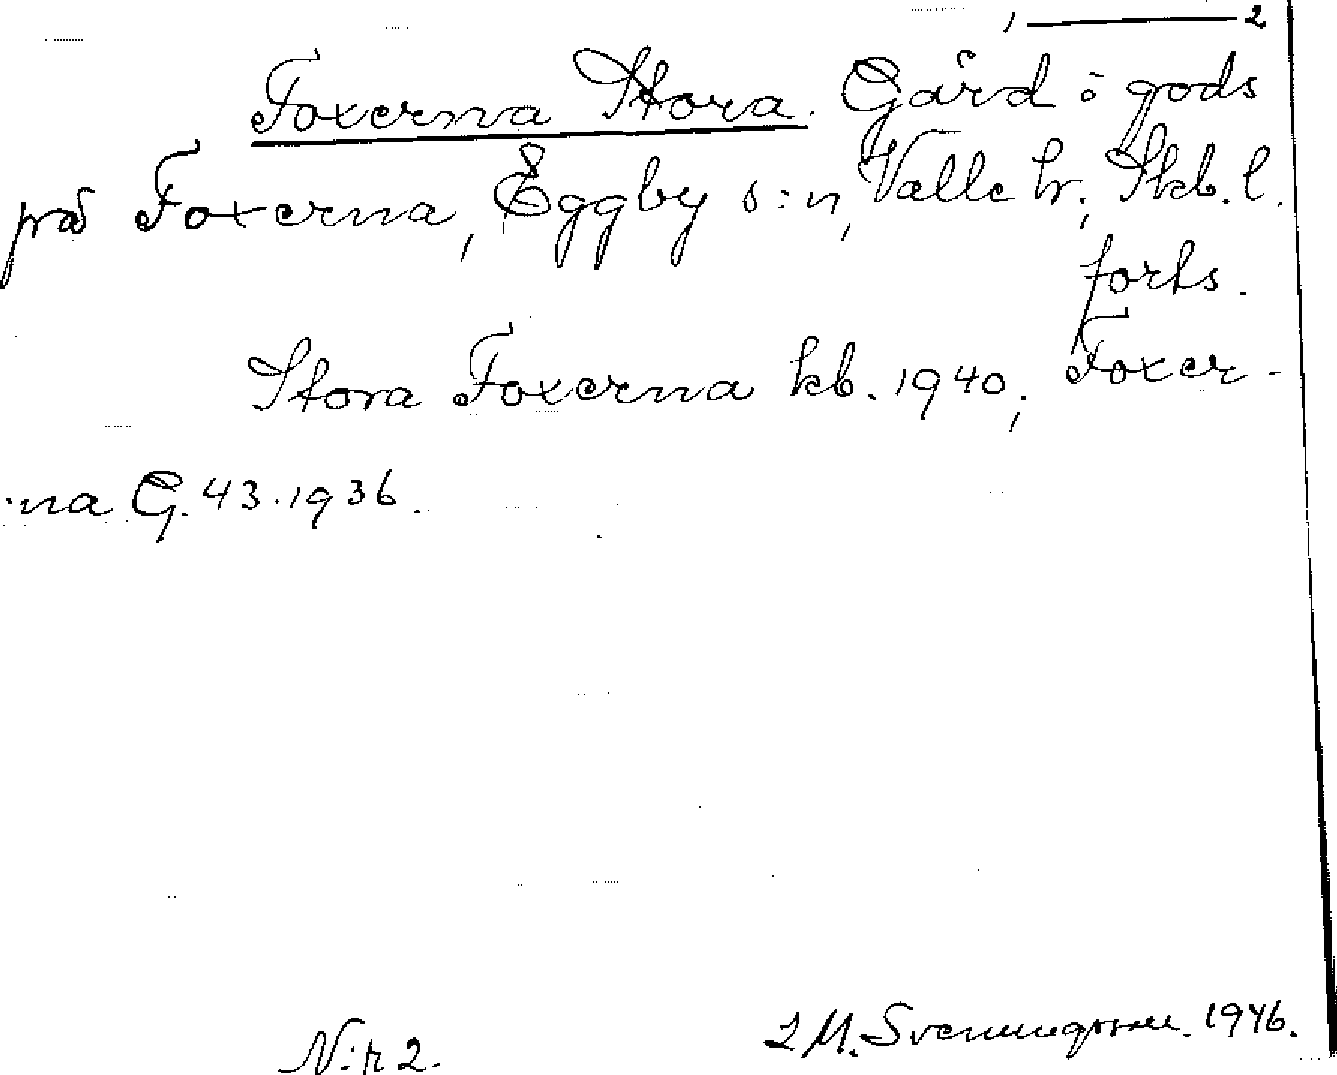 1 — 2
Foxerna Stora. Gård o gods
på Foxerna, Eggby s:n, Valle hr., Skb. l.
forts.
Stora Foxerna kb. 1940; Foxer-
na G. 43. 1936.
N:r 2.
M. Svenungsson. 1946.